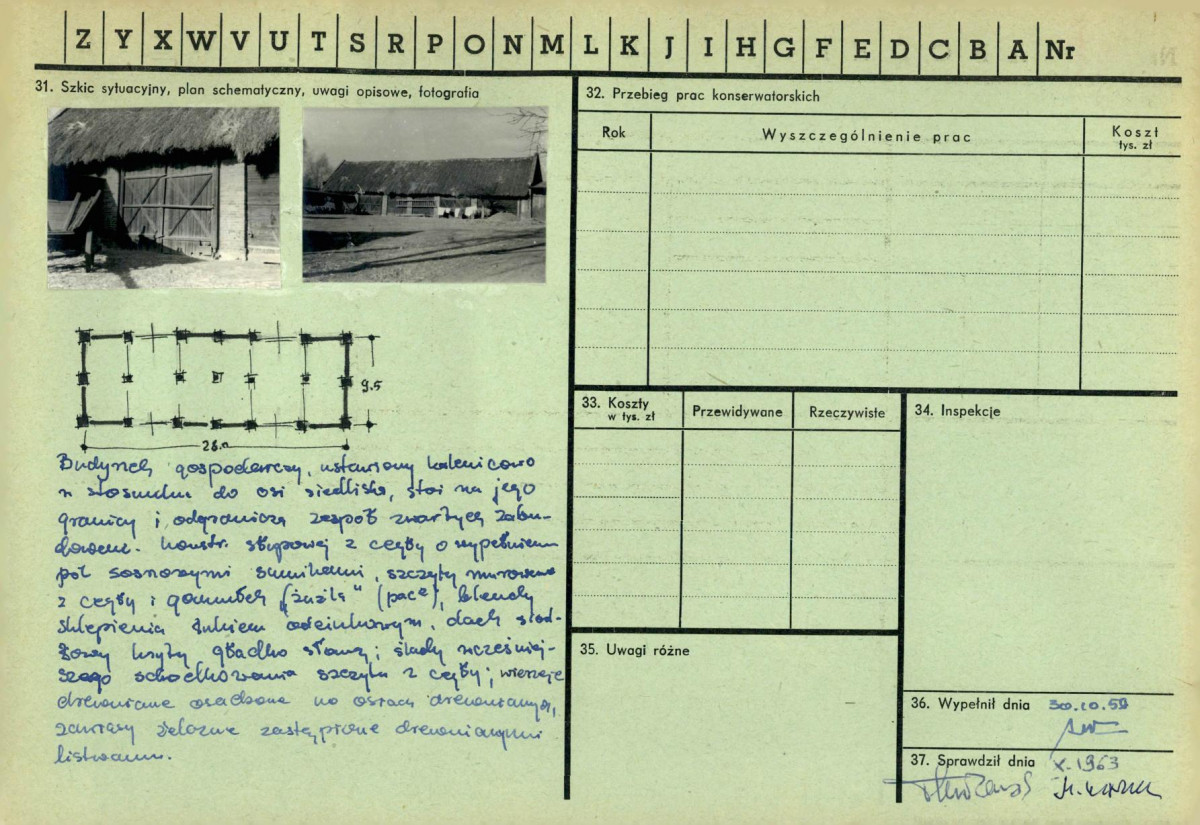 Z Y X W V U T S R P O N M L K J I H G F E D C B A Nr
31. Szkic sytuacyjny, plan schematyczny, uwagi opisowe, fotografia
9.5
Budynek gospodarczy, ustawiony kalenicowo
w stosunku do osi siedliska, stoi na jego
granicy i odgranicza zespół zwartych zabu-
dowań. Konstr. słupowej z cegły o wypełnieniu
pól sosnowymi sumikami, szczyty murowane
z cegły i gomułek „żużla" (pace), blendy
sklepienia łukiem odcinkowym, dach siod-
łowy kryty gładko słomą; ślady wcześniej-
szego schodkowania szczytu z cegły; wierzeje
drewniane osadzone na osiach drewnianych,
zawiasy żelazne zastąpione drewnianymi
listwami.
32. Przebieg prac konserwatorskich
Rok
Wyszczególnienie prac
Koszt
tys. zł
33. Koszty
w tys. zł
Przewidywane
Rzeczywiste
34. Inspekcje
35. Uwagi różne
36. Wypełnił dnia 30.10.59
37. Sprawdził dnia X.1963